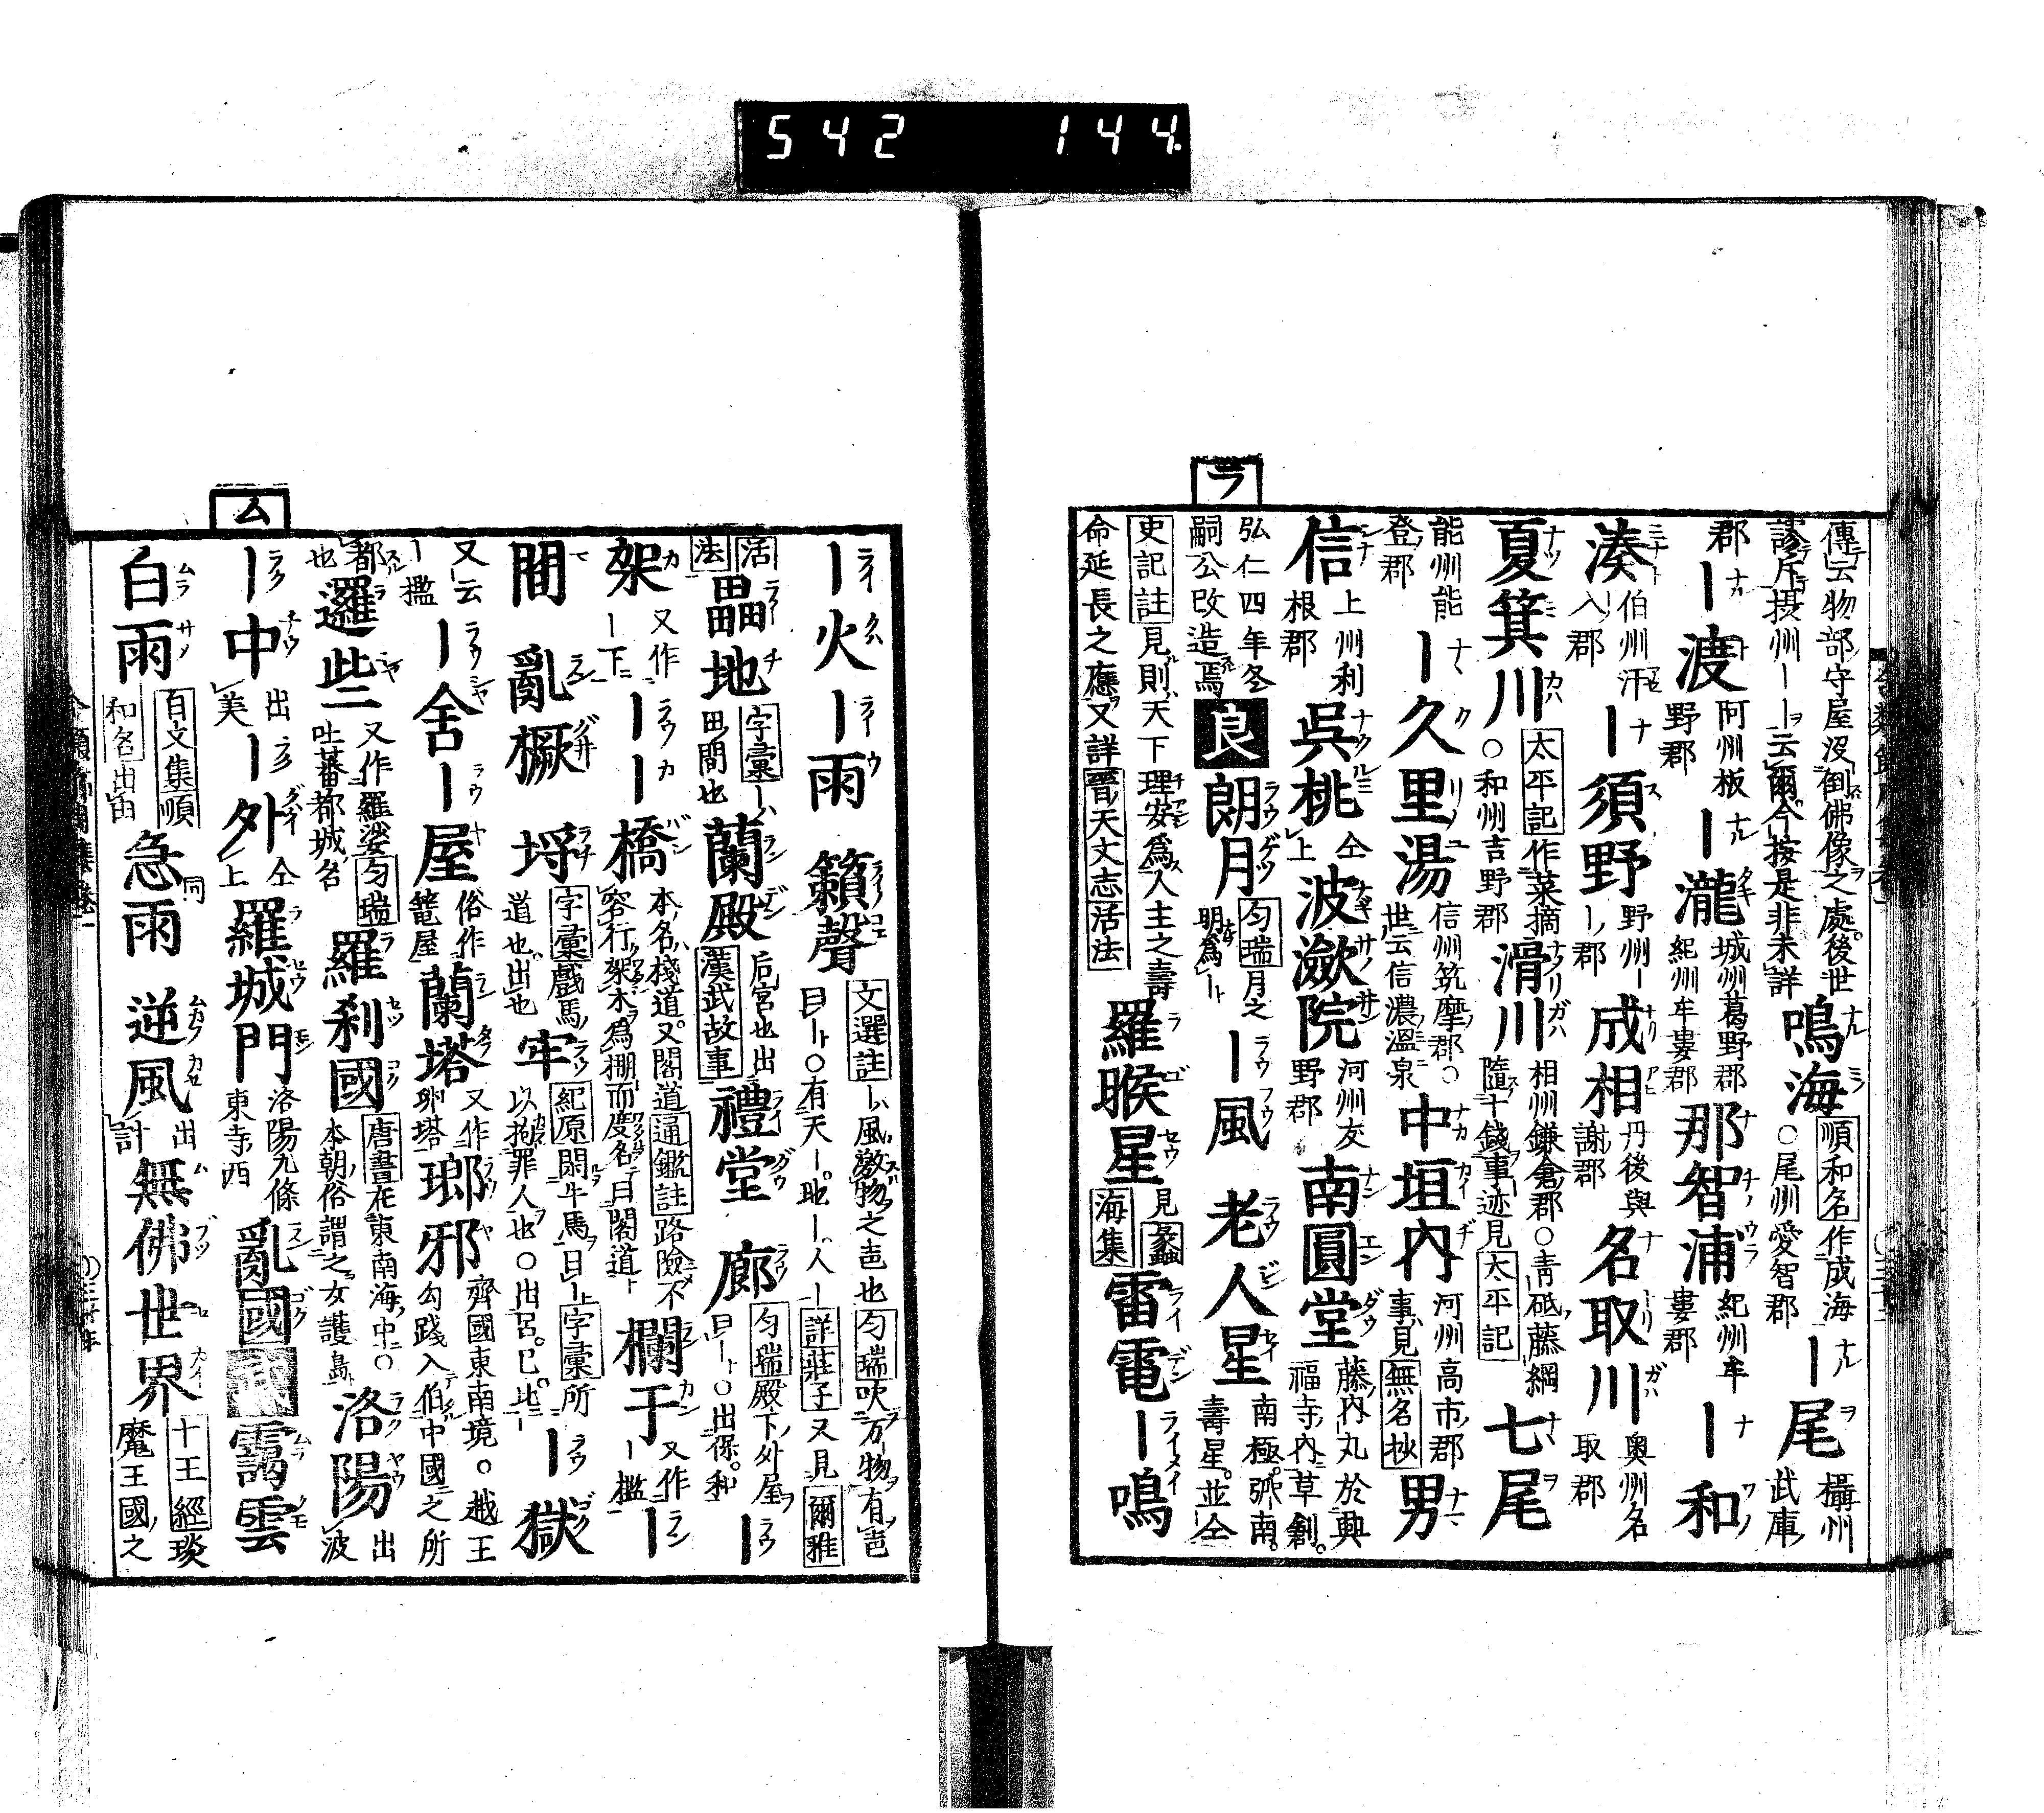 542 144.
ラ
傳云物部守屋沒倒佛像之處後世
謬斥摂州――云爾今按是非未詳
鳴海
順和名作成海
○尾州愛智郡
―尾
攝州
武庫
郡
―渡
阿州板
野郡
―瀧
城州葛野郡
紀州牟婁郡
那智浦
紀州牟
婁郡
―和
湊
伯州汗
入郡
―須野
野州―
―郡
成相
丹後與
謝郡
名取川
奥州名
取郡
夏箕川
太平記作菜摘
○和州吉野郡
滑川
相州鎌倉郡○青砥藤綱
隨十錢事迹見太平記
七尾
能州能
登郡
―久里湯
信州筑摩郡○
世云信濃溫泉
中垣内
河州高市郡
事見無名抄
男
信
上州利
根郡
呉桃
仝
上
波瀲院
河州友
野郡
南圓堂
藤内丸於興
福寺内草創
弘仁四年冬
嗣公改造焉
良
朗月
匀瑞月之
明為―
―風
老人星
南極弧南
壽星並仝
史記註見則天下理安為人主之壽
命延長之應又詳晉天文志活法
羅睺星
見蠡
海集
雷電
―鳴
ム
―火
―雨
籟聲
文選註―風激物之㫖也匀瑞吹万物有㫖
曰―○有天―地―人―詳莊子又見爾雅
活
法
畾地
字彙―
田間也
蘭殿
后宮也出
漢武故事
禮堂
廊
匀瑞殿下外屋
曰―○出保和
―
架
又作
―下
――橋
本名棧道又閣道通鑑註路險不
容行架木為棚而度名曰閣道
欄于
又作
―檻
―
間
亂橛
埒
字彙戲馬
道也出也
牢
紀原閑牛馬曰―字彙所
以拘罪人也○出呂巳
―獄
又云
―檻
―舍
―屋
俗作
籠屋
蘭塔
又作
卵塔
瑯邪
齊國東南境○越王
勾踐入伯中國之所
都
也
邏些
又作羅娑匀瑞
吐蕃都城名
羅刹國
唐書在東南海中○
本朝俗謂之女護島
洛陽
出
波
―中
出
美
―外
仝
上
羅城門
洛陽九條
東寺西
亂國
靄雲
白雨
百文集順
和名出由
急雨
同
逆風
出
計
無佛世界
十王經琰
魔王國之